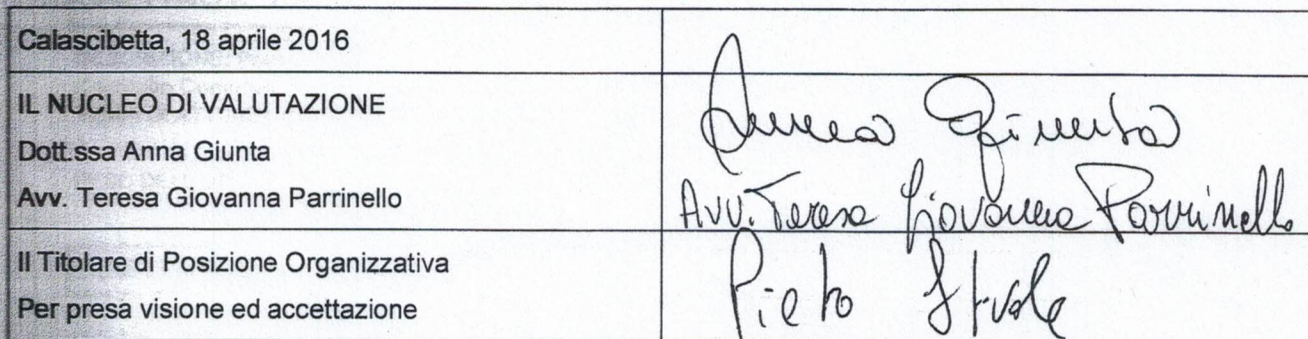 Calascibetta, 18 aprile 2016
IL NUCLEO DI VALUTAZIONE
Dott.ssa Anna Giunta
Avv. Teresa Giovanna Parrinello
Anna Giunta
Avv. Teresa Giovanna Parrinello
Il Titolare di Posizione Organizzativa
Per presa visione ed accettazione